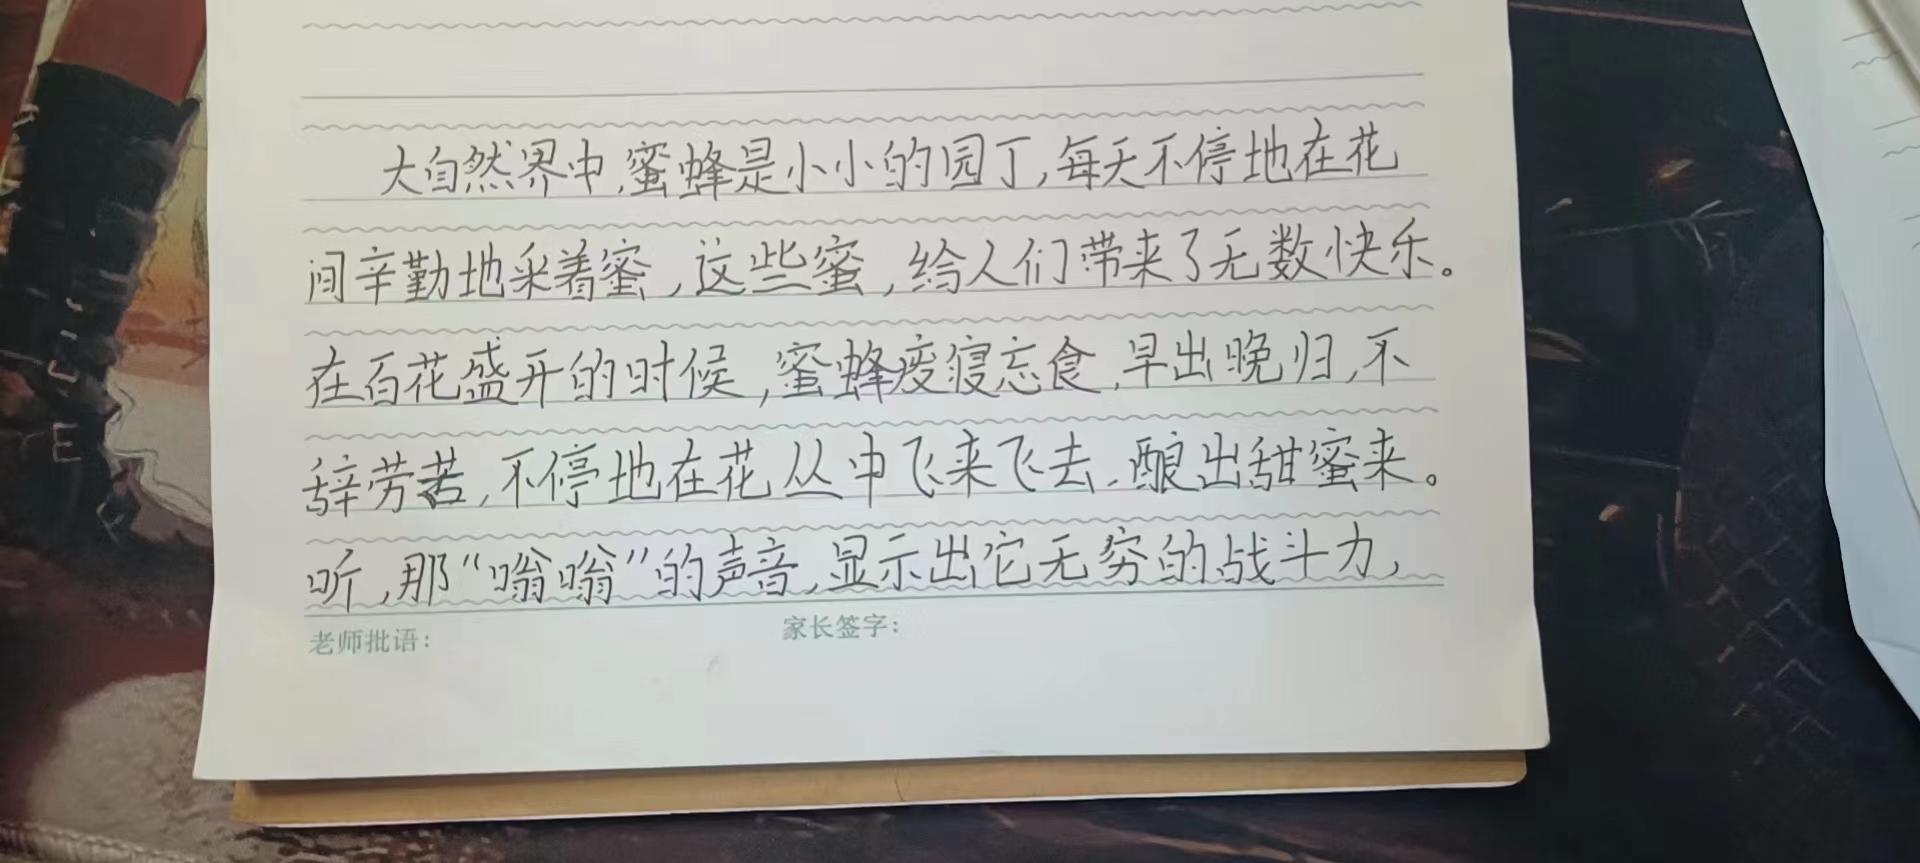 大自然界中,蜜蜂是小小的园丁,每天不停地在花
间辛勤地采着蜜,这些蜜,给人们带来了无数快乐。
在百花盛开的时候,蜜蜂废寝忘食,早出晚归,不
辞劳苦,不停地在花丛中飞来飞去,酿出甜蜜来。
听,那“嗡嗡”的声音,显示出它无穷的战斗力,
老师批语: 家长签字: